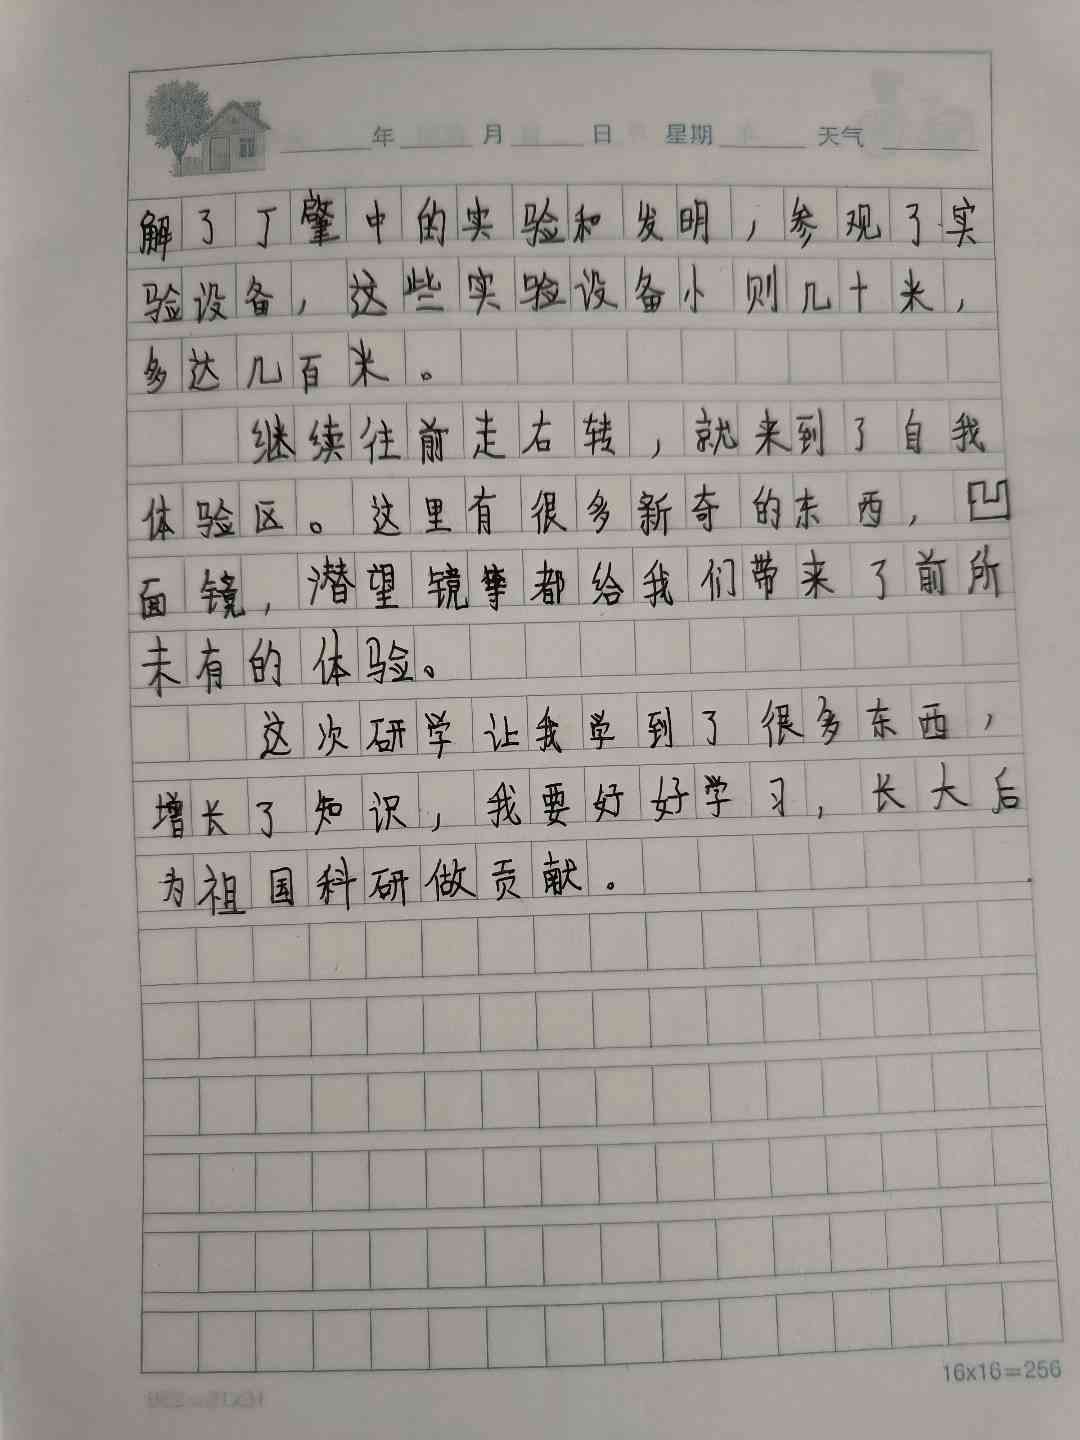 年 月 日 星期 天气
解了丁肇中的实验和发明，参观了实
验设备，这些实验设备小则几十米，
多达几百米。
继续往前走右转，就来到了自我
体验区。这里有很多新奇的东西，凹
面镜，潜望镜等都给我们带来了前所
未有的体验。
这次研学让我学到了很多东西，
增长了知识，我要好好学习，长大后
为祖国科研做贡献。
16x16=256